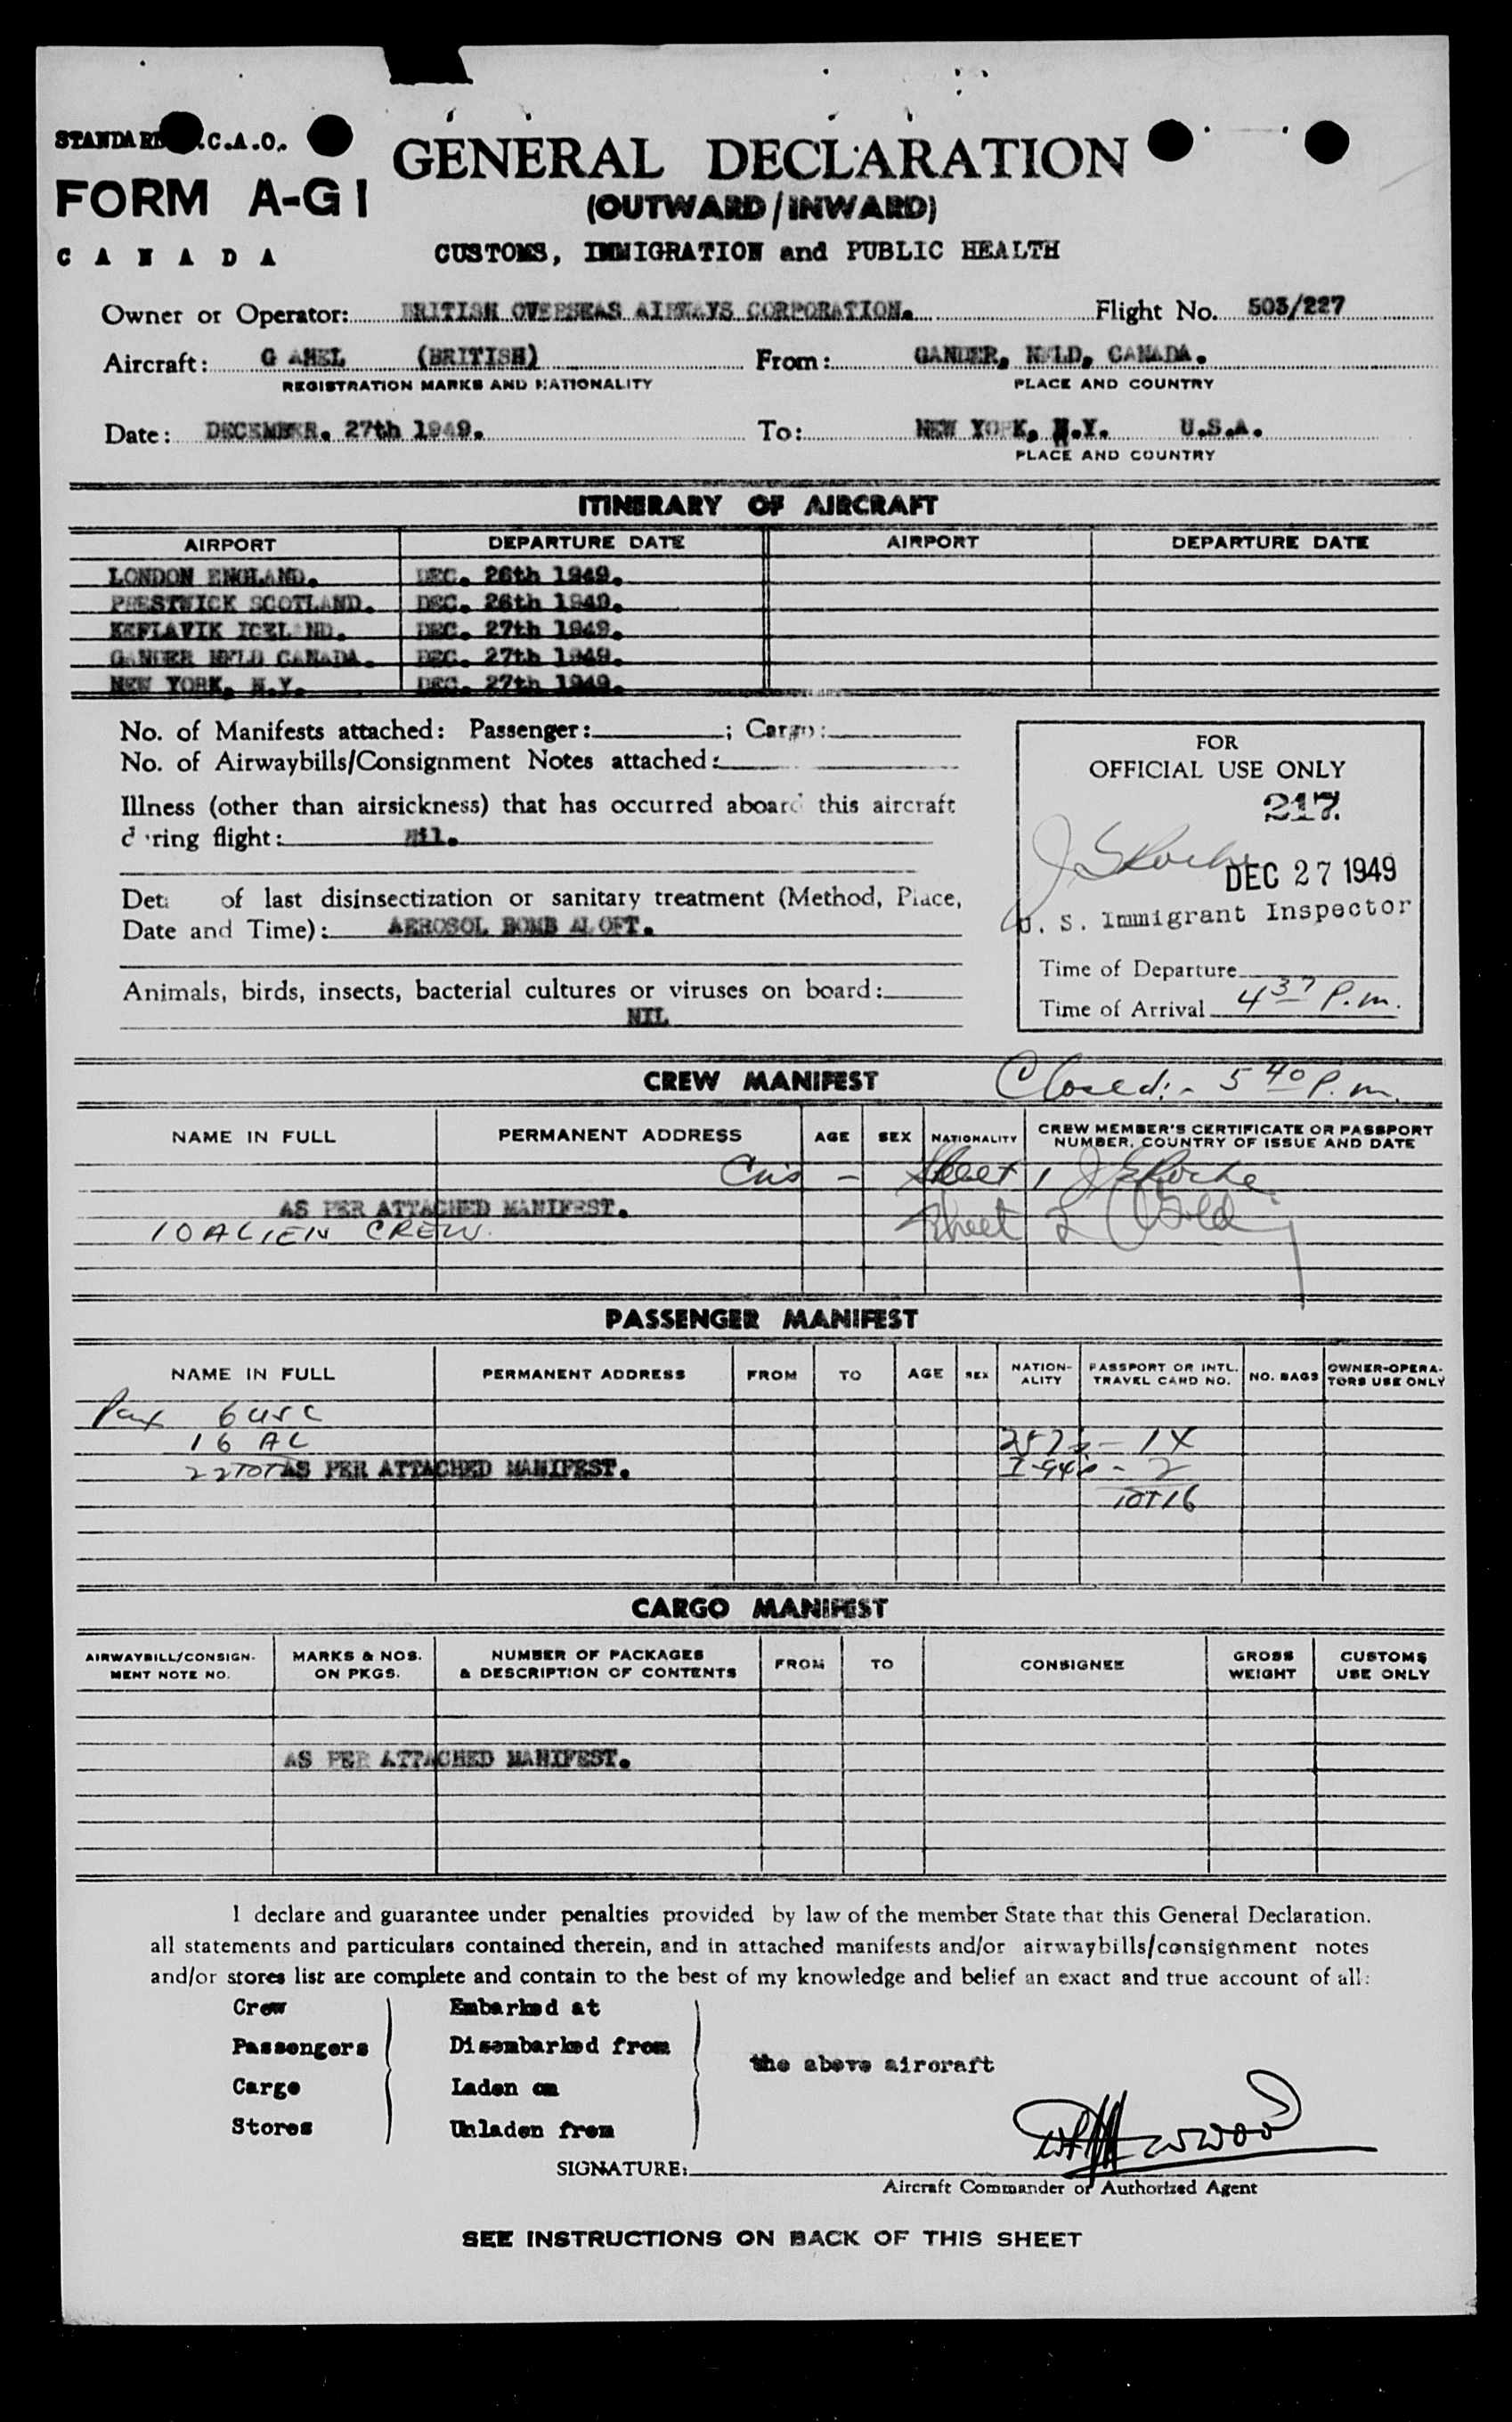 STANDARD I.C.A.O.
FORM A-G1
CANADA
GENERAL DECLARATION
(OUTWARD/INWARD)
CUSTOMS, IMMIGRATION and PUBLIC HEALTH
Owner or Operator: BRITISH OVERSEAS AIRWAYS CORPORATION. Flight No. 503/227
Aircraft: G AHEL (BRITISH) From: GANDER, NFLD, CANADA.
REGISTRATION MARKS AND NATIONALITY PLACE AND COUNTRY
Date: DECEMBER. 27th 1949. To: NEW YORK, N.Y. U.S.A.
PLACE AND COUNTRY
ITINERARY OF AIRCRAFT
AIRPORT DEPARTURE DATE AIRPORT DEPARTURE DATE
LONDON ENGLAND. DEC. 26th 1949.
PRESTWICK SCOTLAND. DEC. 26th 1949.
KEFLAVIK ICELAND. DEC. 27th 1949.
GANDER NFLD CANADA. DEC. 27th 1949.
NEW YORK, N.Y. DEC. 27th 1949.
No. of Manifests attached: Passenger: ; Cargo:
No. of Airwaybills/Consignment Notes attached:
Illness (other than airsickness) that has occurred aboard this aircraft
during flight: Nil.
Det of last disinsectization or sanitary treatment (Method, Place,
Date and Time): AEROSOL BOMB ALOFT.
Animals, birds, insects, bacterial cultures or viruses on board:
NIL
FOR
OFFICIAL USE ONLY
217
J S Roche
DEC 27 1949
U. S. Immigrant Inspector
Time of Departure
Time of Arrival 4 37 P.m.
CREW MANIFEST Closed:- 5 40 P.m.
NAME IN FULL PERMANENT ADDRESS AGE SEX NATIONALITY CREW MEMBER'S CERTIFICATE OR PASSPORT
NUMBER, COUNTRY OF ISSUE AND DATE
- Sheet 1 J S Roche
AS PER ATTACHED MANIFEST. Sheet 2
10 ALIEN CREW.
PASSENGER MANIFEST
NAME IN FULL PERMANENT ADDRESS FROM TO AGE SEX NATION-
ALITY PASSPORT OR INTL.
TRAVEL CARD NO. NO. BAGS OWNER-OPERA-
TORS USE ONLY
Pax 6 USC
16 AL 257s - 14
22 TOT AS PER ATTACHED MANIFEST. I-94s - 2
TOT 16
CARGO MANIFEST
AIRWAYBILL/CONSIGN-
MENT NOTE NO. MARKS & NOS.
ON PKGS. NUMBER OF PACKAGES
& DESCRIPTION OF CONTENTS FROM TO CONSIGNEE GROSS
WEIGHT CUSTOMS
USE ONLY
AS PER ATTACHED MANIFEST.
I declare and guarantee under penalties provided by law of the member State that this General Declaration.
all statements and particulars contained therein, and in attached manifests and/or airwaybills/consignment notes
and/or stores list are complete and contain to the best of my knowledge and belief an exact and true account of all:
Crew Embarked at
Passengers Disembarked from
the above aircraft
Cargo Laden on
Stores Unladen from
SIGNATURE:
Aircraft Commander or Authorized Agent
SEE INSTRUCTIONS ON BACK OF THIS SHEET